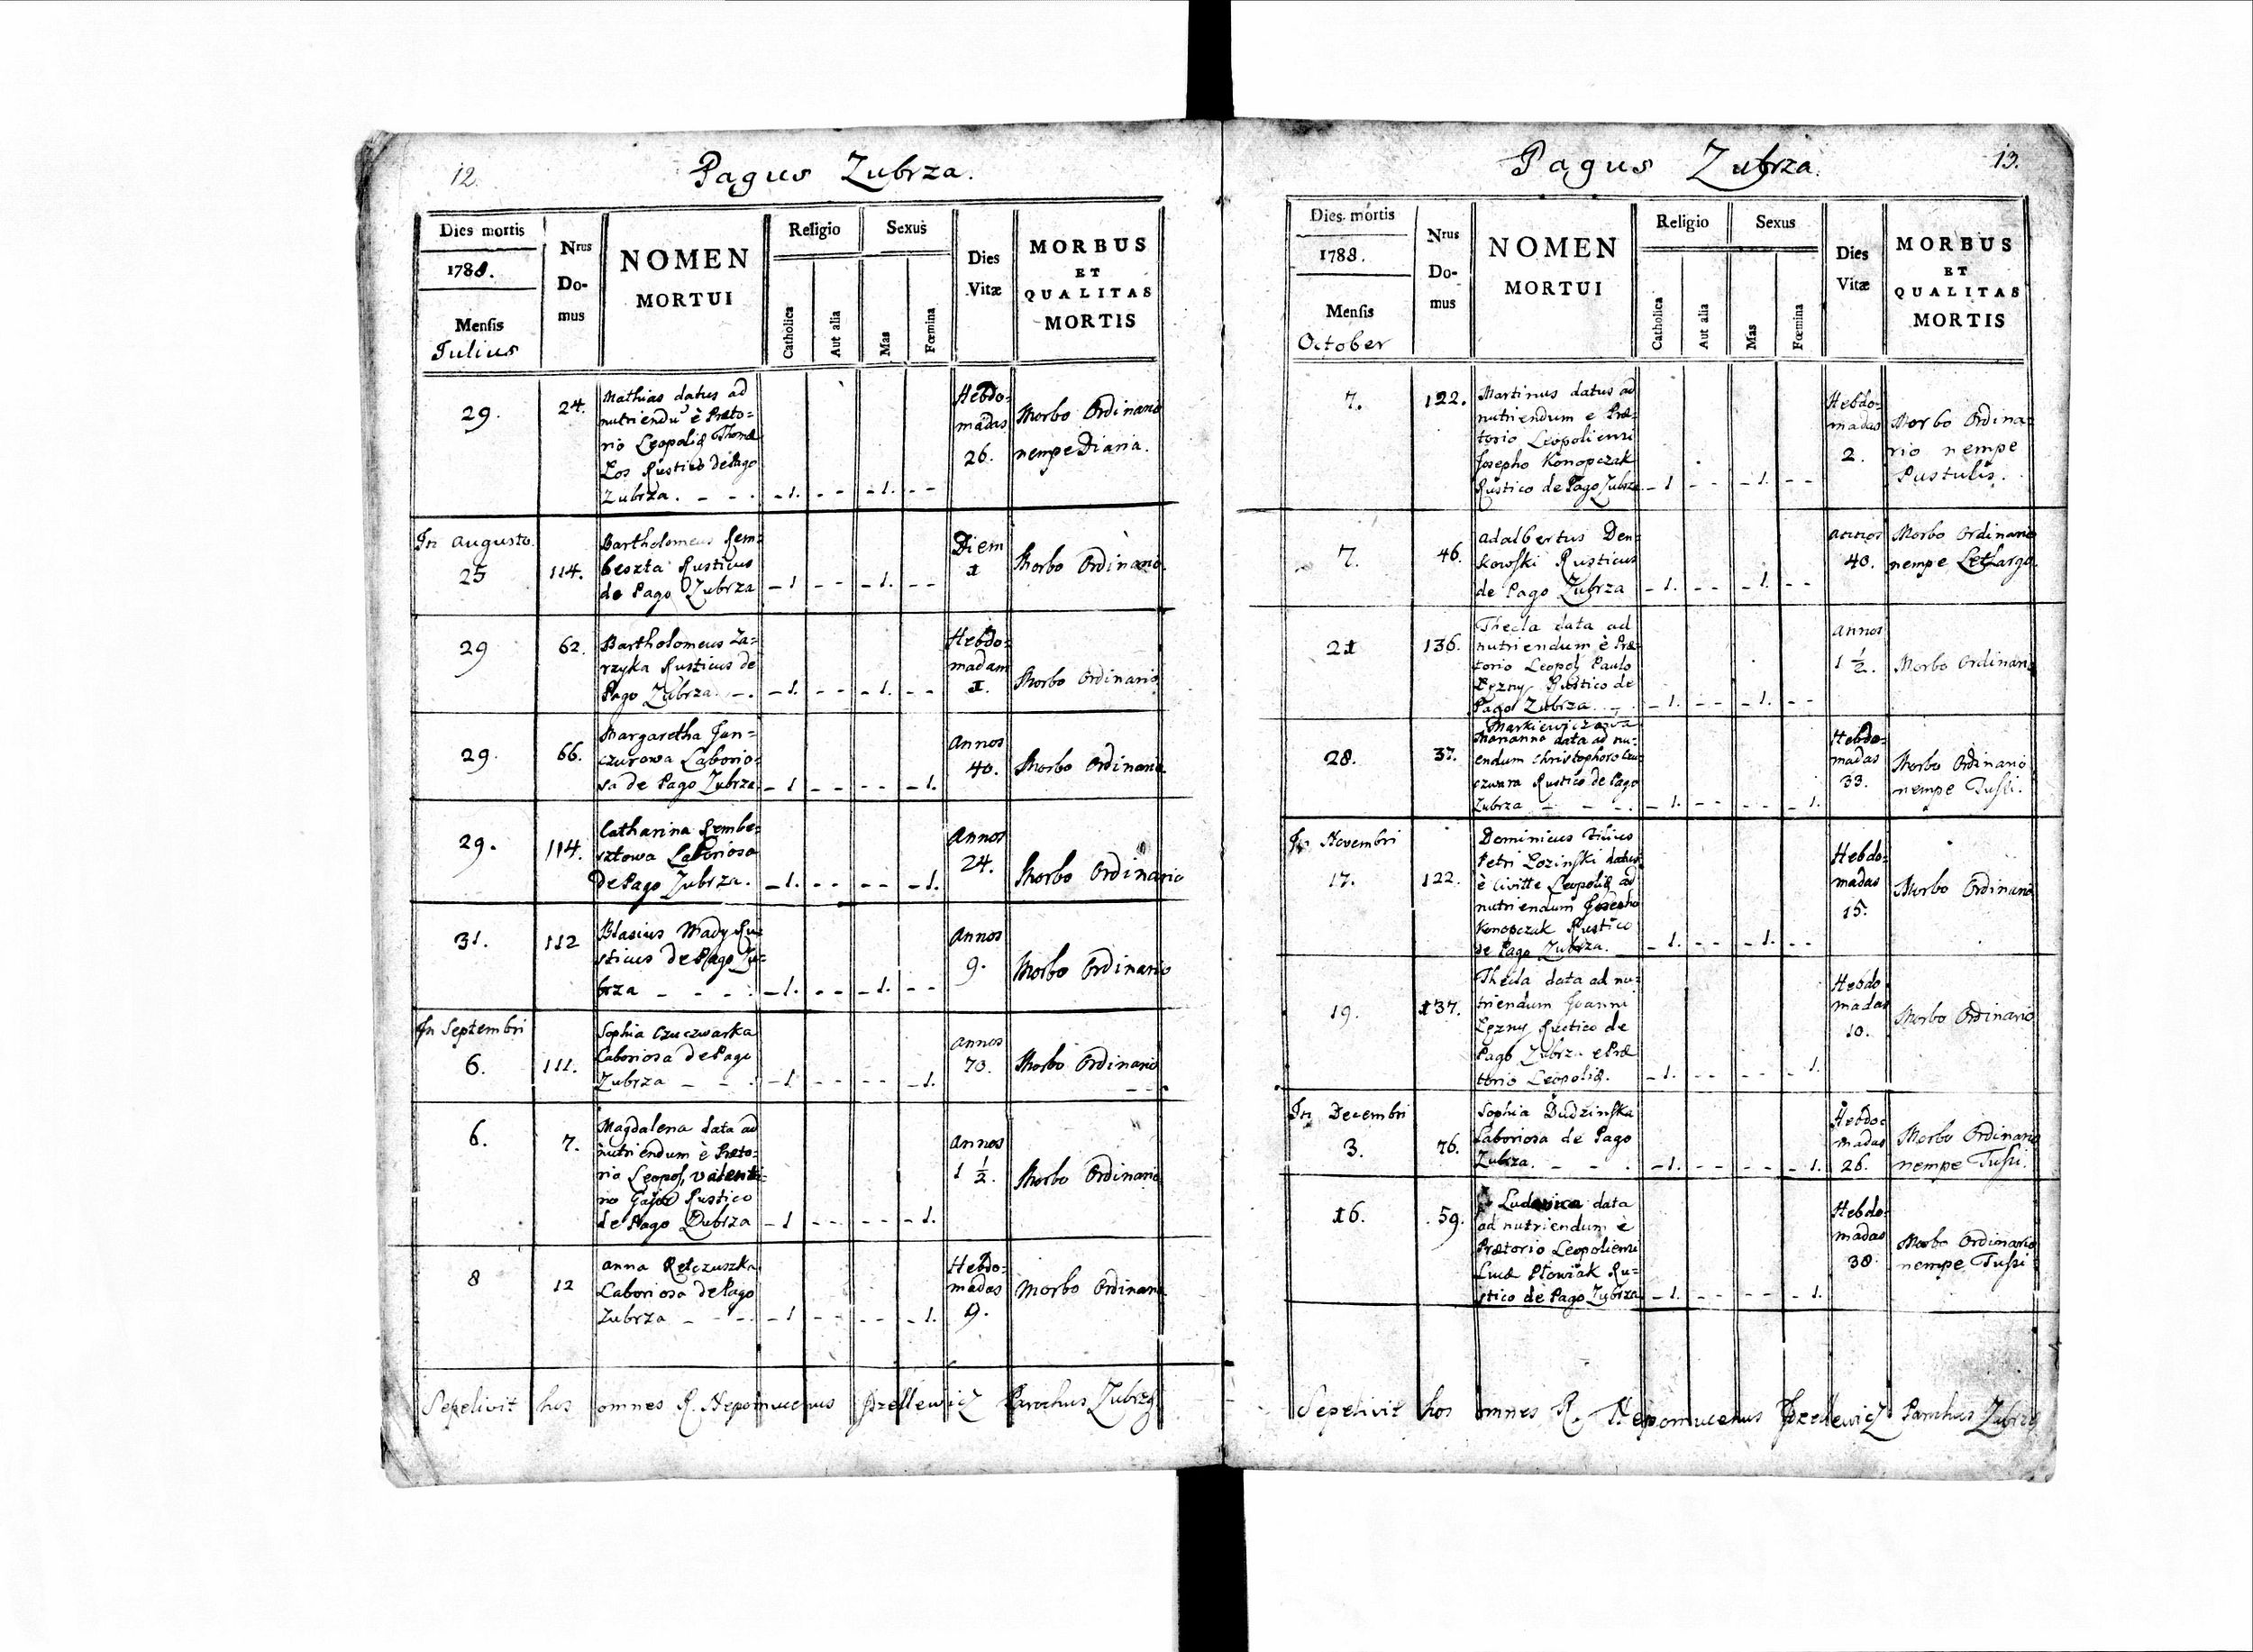 12.
Pagus Zubrza.
Dies mortis
1788.
Mensis
Julius
Nrus
Do-
mus
NOMEN
MORTUI
Religio
Catholica
Aut alia
Sexus
Mas
Fœmina
Dies
Vitæ
MORBUS
ET
QUALITAS
MORTIS
29. 24.
Mathias datus ad
nutriendū è Præto=
rio Leopolię Thomæ
Los Rustico de Pago
Zubrza. - - . - 1. - - - 1. - -
Hebdo=
madas
26.
Morbo Ordinario
nempe Diaria.
In augusto
25 114.
Bartholomeus Rem=
beszta Rusticus
de Pago Zubrza - 1 - - - 1. - -
Diem
1
Morbo Ordinario.
29 62.
Bartholomeus Za=
rzyka Rusticus de
Pago Zubrza. - . - 1. - - - 1. - -
Hebdo=
madam
1.
Morbo Ordinario
29. 66.
Margaretha Jan=
czurowa Laborio=
sa de Pago Zubrza - 1 - - - - - 1.
Annos
40.
Morbo Ordinario
29. 114.
Catharina Rembe=
sztowa Laboriosa
de Pago Zubrza. - 1. - - - - - 1.
Annos
24.
Morbo Ordinario
31. 112
Blasius Mady Ru=
sticus de Pago Zu=
brza - - - . - 1. - - - 1. - -
Annos
9.
Morbo Ordinario
In Septembri
6. 111.
Sophia Czuczwarka
Laboriosa de Pago
Zubrza - - . - 1 - - - - - 1.
annos
70.
Morbo Ordinario
6. 7.
Magdalena data ad
nutriendum è Præto=
rio Leopol, Valenti=
no Gajor Rustico
de Pago Zubrza - 1 - - - - - 1.
annos
1 1/2.
Morbo Ordinario
8 12
anna Retczuszka
Laboriosa de Pago
Zubrza - - - . - 1 - - - - - 1.
Hebdo=
madas
9.
Morbo Ordinario
Sepelivit hos omnes R. Nepomucenus Parochus Zubrzę
13.
Pagus Zubrza.
Dies mortis
1788.
Mensis
October
Nrus
Do-
mus
NOMEN
MORTUI
Religio
Catholica
Aut alia
Sexus
Mas
Fœmina
Dies
Vitæ
MORBUS
ET
QUALITAS
MORTIS
7. 122.
Martinus datus ad
nutriendum e Præ=
torio Leopoliensi
Josepho Konopczak
Rustico de Pago Zubrza - 1 - - - 1. - -
Hebdo=
madas
2.
Morbo Ordina=
rio nempe
Pustulis.
7. 46.
Adalbertus Den=
kowski Rusticus
de Pago Zubrza - 1. - - - 1. - -
annos
40.
Morbo Ordinario
nempe Lethargo.
21 136.
Thecla data ad
nutriendum è Præ=
torio Leopol, Paulo
Lęzny Rustico de
Pago Zubrza. - . - 1. - - - 1. - -
annos
1 1/2.
Morbo Ordinario
28. 37.
Markiewiczowa
Marianna data ad nu=
endum Christophoro Czu=
czwara Rustico de Pago
Zubrza - - - . - 1. - - - - - 1.
Hebdo=
madas
33.
Morbo Ordinario
nempe Tussi.
In Novembri
17. 122.
Dominicus Filius
Petri Lozinski datus
è Civitte Leopolię ad
nutriendum Josepho
Konopczak Rustico
de Pago Zubrza. - 1. - - - 1. - -
Hebdo=
madas
15.
Morbo Ordinario
19. 137.
Thecla data ad nu=
triendum Joanni
Lęzny Rustico de
Pago Zubrza e Præ
torio Leopolię. - 1. - - - - - 1.
Hebdo
madas
10.
Morbo Ordinario
In Decembri
3. 76.
Sophia Dudzinska
Laboriosa de Pago
Zubrza. - - . - 1. - - - - - 1.
Hebdo=
madas
26.
Morbo Ordinario
nempe Tussi.
16. 59.
Ludovica data
ad nutriendum è
Prætorio Leopoliensi
Lucæ Płowiak Ru=
stico de Pago Zubrza - 1. - - - - - 1.
Hebdo=
madas
38.
Morbo Ordinario
nempe Tussi
Sepelivit hos omnes R. Nepomucenus Parochus Zubrzę